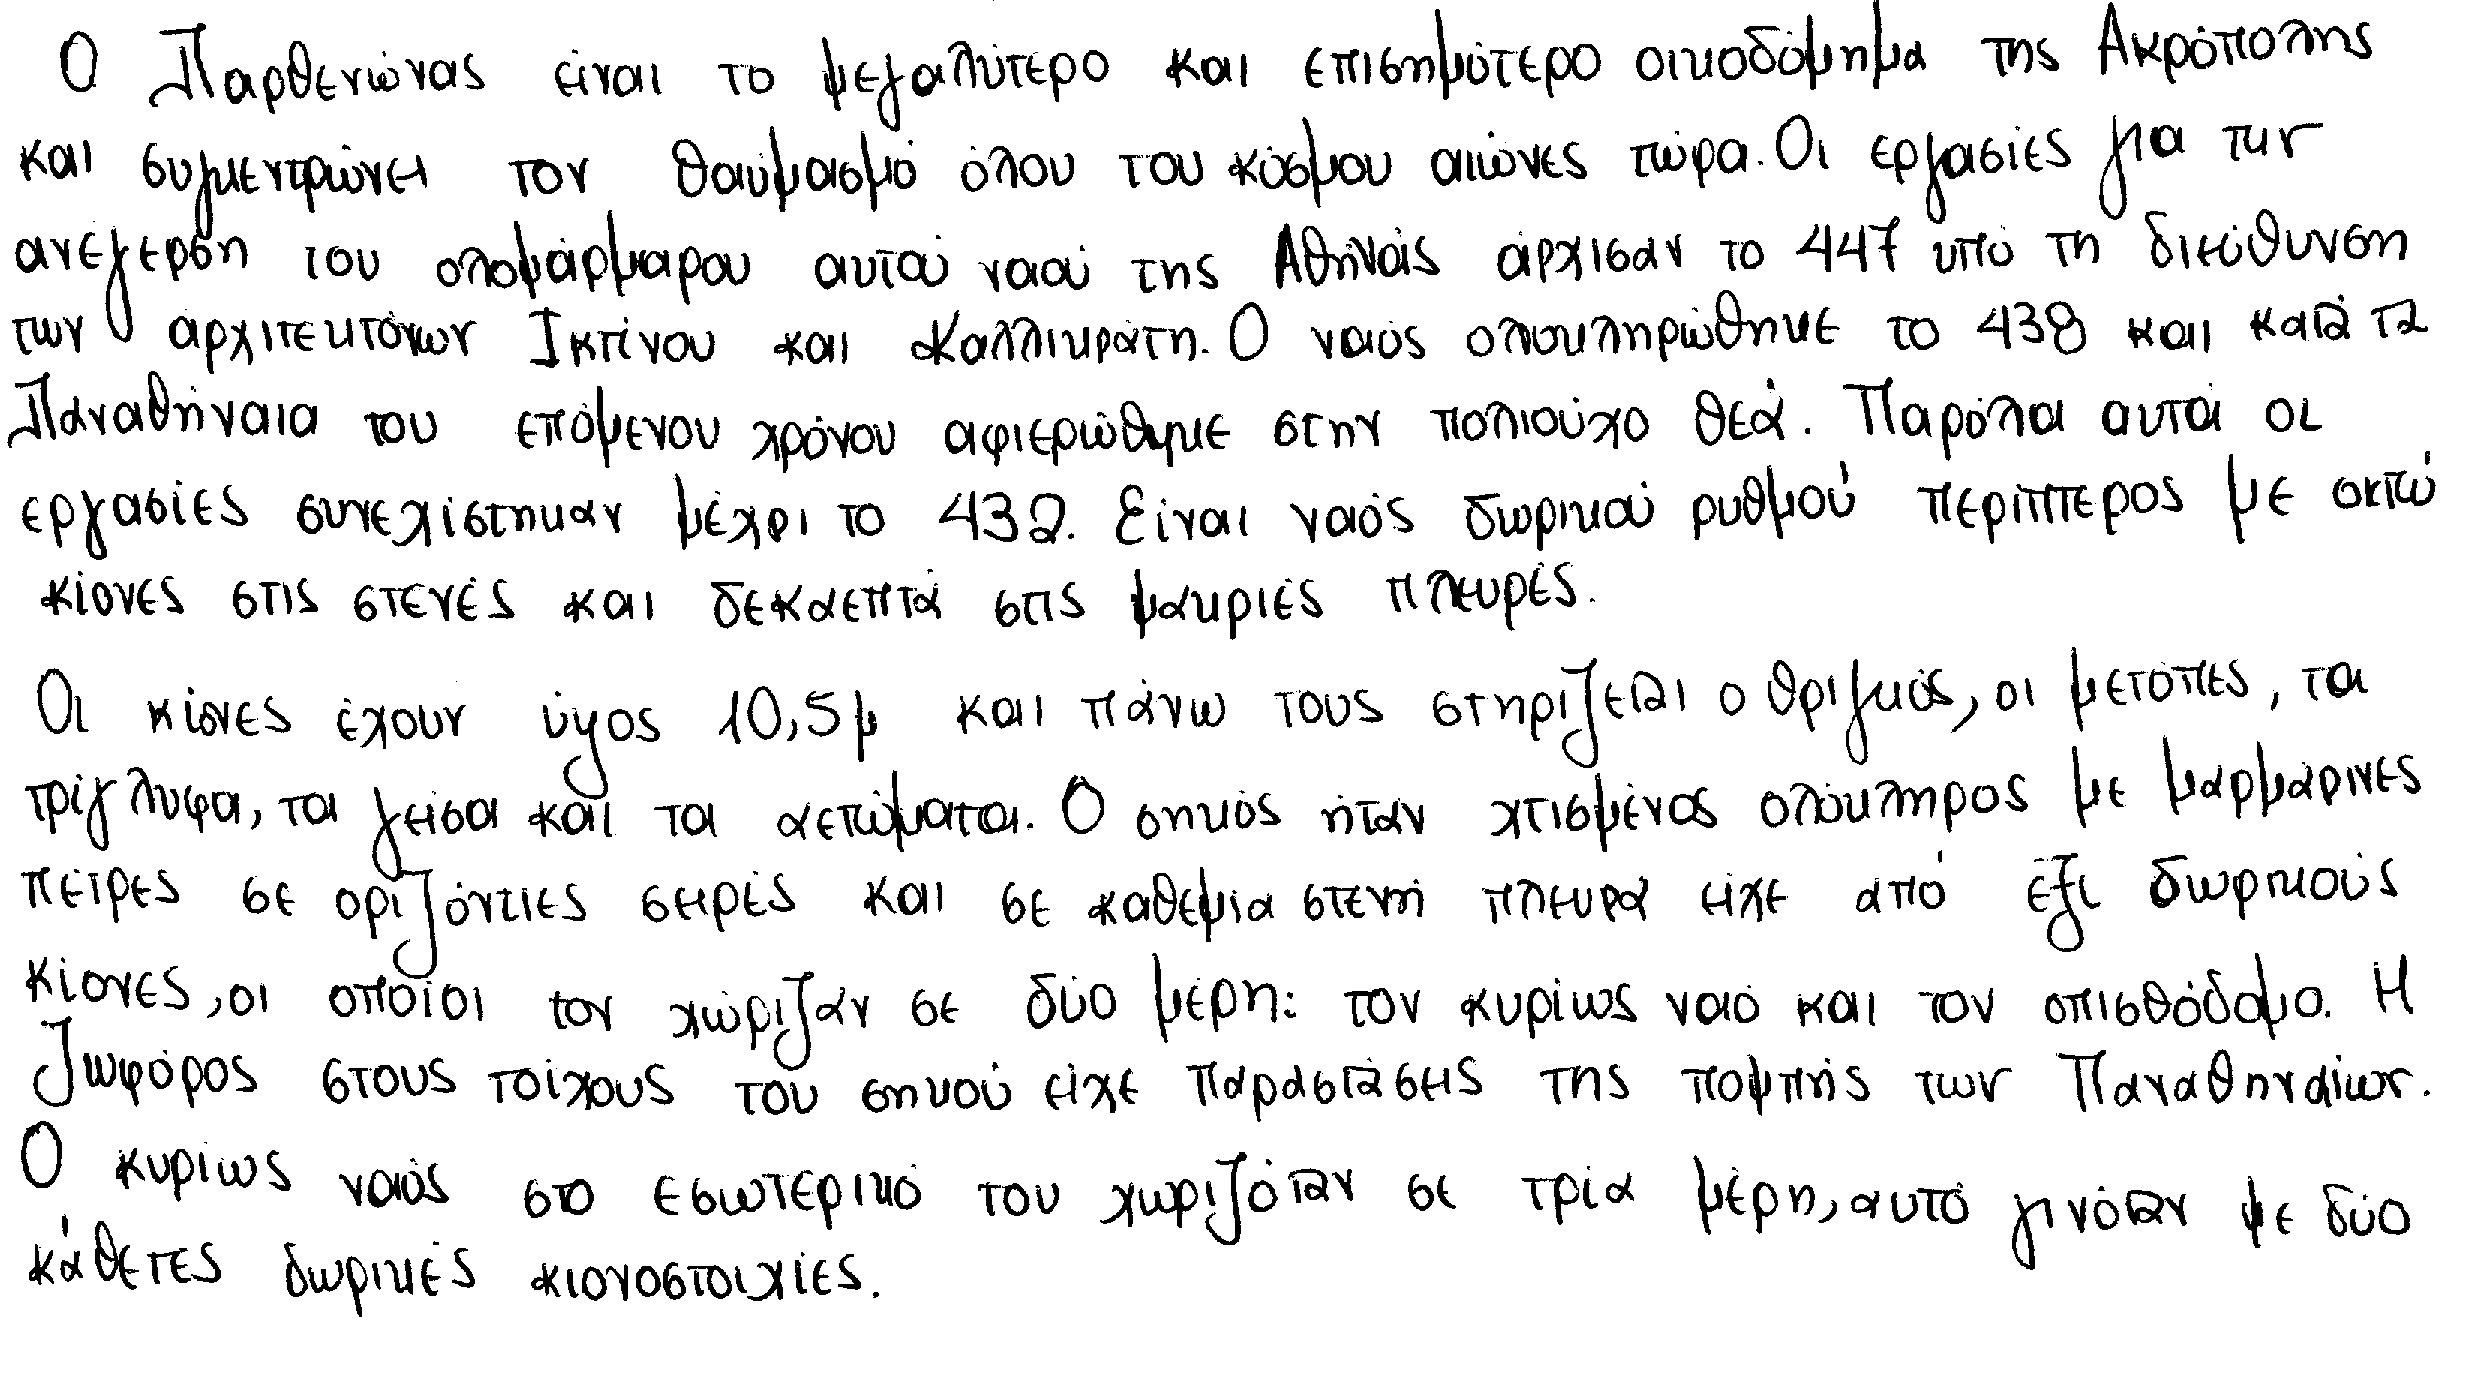 Ο Παρθενώνας είναι το μεγαλύτερο και επισημότερο οικοδόμημα της Ακρόπολης
και συγκεντρώνει τον θαυμασμό όλου του κόσμου αιώνες τώρα. Οι εργασίες για την
ανέγερση του ολομάρμαρου αυτού ναού της Αθηνάς άρχισαν το 447 υπό τη διεύθυνση
των αρχιτεκτόνων Ικτίνου και Καλλικράτη. Ο ναός ολοκληρώθηκε το 438 και κατά τα
Παναθήναια του επόμενου χρόνου αφιερώθηκε στην πολιούχο θεά. Παρόλα αυτά οι
εργασίες συνεχίστηκαν μέχρι το 432. Είναι ναός δωρικού ρυθμού περίπτερος με οκτώ
κίονες στις στενές και δεκαεπτά στις μακριές πλευρές.
Οι κίονες έχουν ύψος 10,5μ και πάνω τους στηρίζεται ο θριγκός, οι μετόπες, τα
τρίγλυφα, τα γείσα και τα αετώματα. Ο σηκός ήταν χτισμένος ολόκληρος με μαρμάρινες
πέτρες σε οριζόντιες σειρές και σε καθεμία στενή πλευρά είχε από έξι δωρικούς
κίονες, οι οποίοι τον χώριζαν σε δύο μέρη: τον κυρίως ναό και τον οπισθόδομο. Η
ζωφόρος στους τοίχους του σηκού είχε παραστάσεις της πομπής των Παναθηναίων.
Ο κυρίως ναός στο εσωτερικό του χωριζόταν σε τρία μέρη, αυτό γινόταν με δύο
κάθετες δωρικές κιονοστοιχίες.